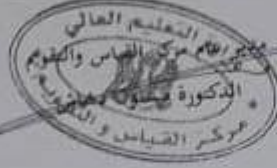 التعليم العالي
مدير عام مركز القياس والتقويم
الدكتورة
مركز القياس والتقويم